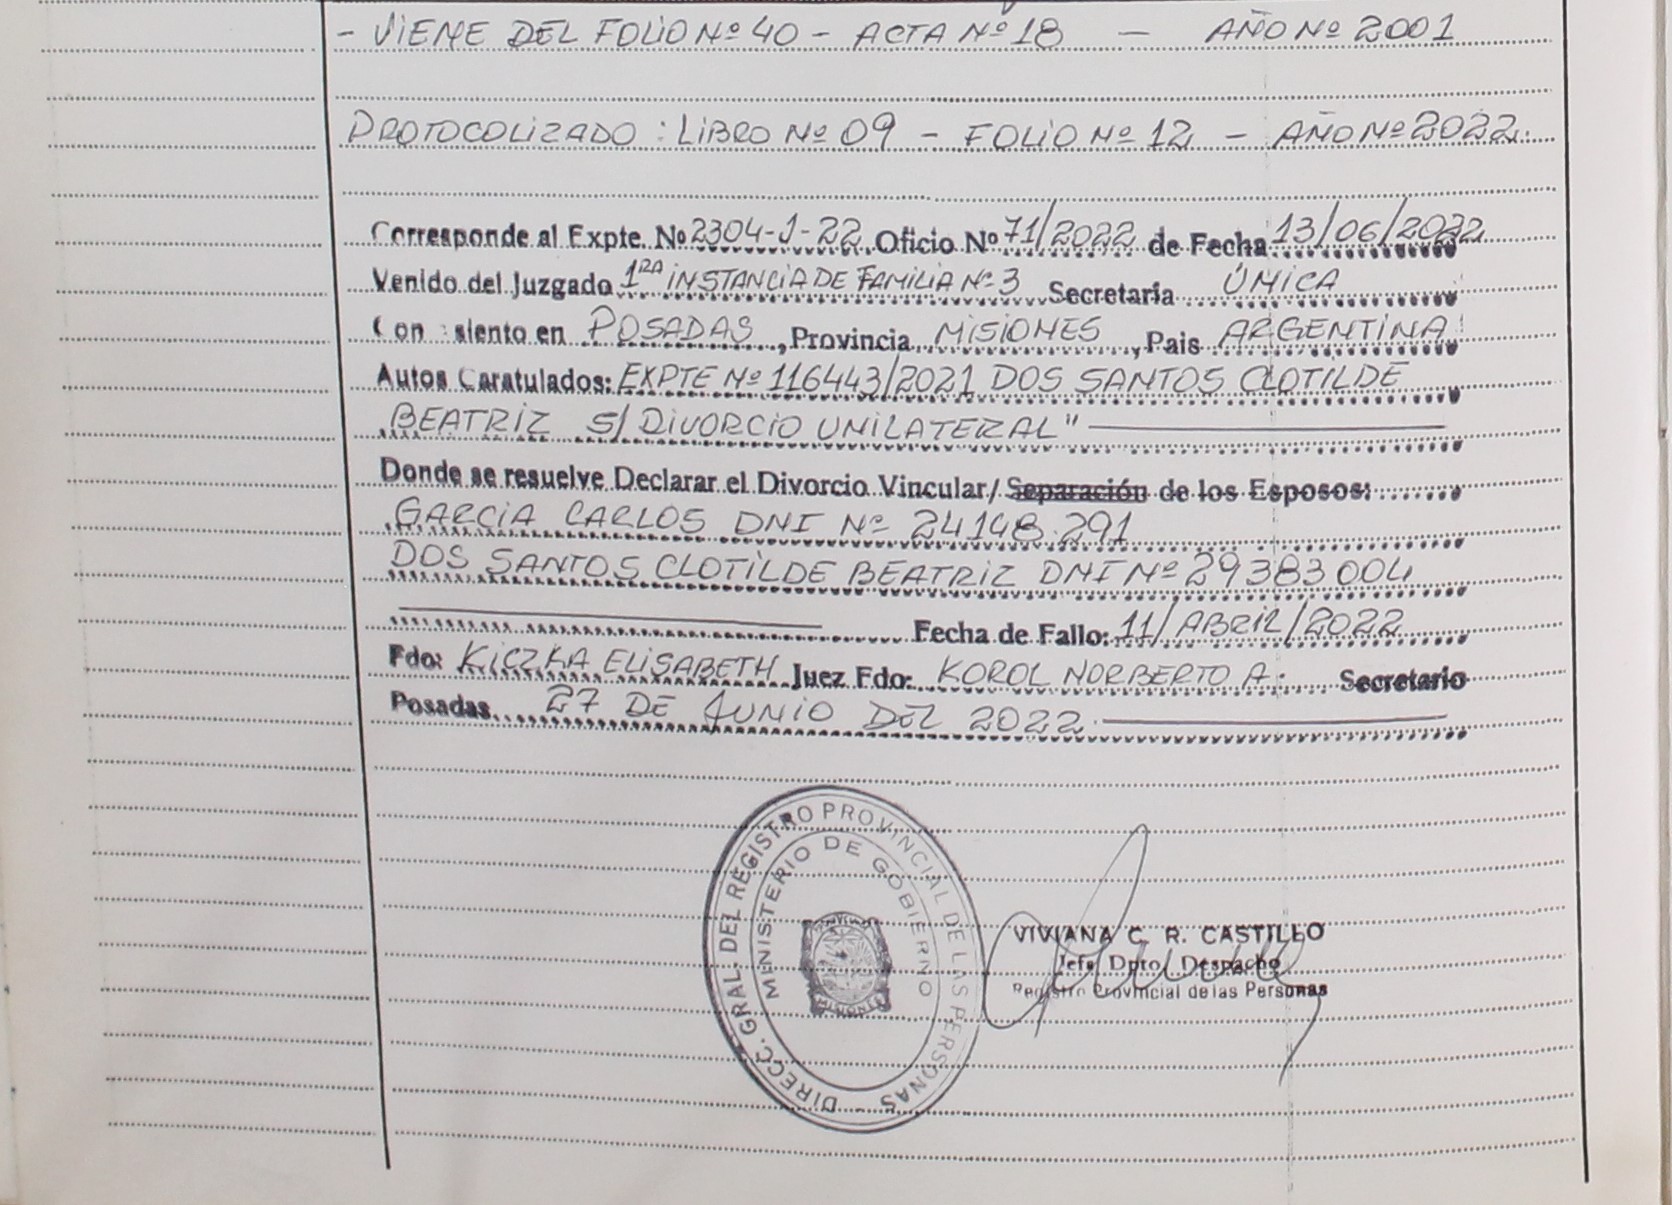 - VIENE DEL FOLIO Nº 40 - ACTA Nº 18 - AÑO Nº 2001
PROTOCOLIZADO : LIBRO Nº 09 - FOLIO Nº 12 - AÑO Nº 2022.
Corresponde al Expte. Nº 2304-J-22 Oficio Nº 71/2022 de Fecha 13/06/2022
Venido del Juzgado 1RA INSTANCIA DE FAMILIA Nº 3 Secretaria ÚNICA
Con siento en POSADAS, Provincia MISIONES, Pais ARGENTINA
Autos Caratulados: EXPTE Nº 116443/2021 DOS SANTOS CLOTILDE
BEATRIZ S/ DIVORCIO UNILATERAL" ———
Donde se resuelve Declarar el Divorcio Vincular/ Separación de los Esposos:
GARCIA CARLOS DNI Nº 24148.291
DOS SANTOS CLOTILDE BEATRIZ DNI Nº 29383004
——— Fecha de Fallo: 11/ABRIL/2022
Fdo: KICZKA ELISABETH Juez Fdo: KOROL NORBERTO A. Secretario
Posadas 27 DE JUNIO DEL 2022 ———
DIRECC. GRAL. DEL REGISTRO PROVINCIAL DE LAS PERSONAS -
MINISTERIO DE GOBIERNO
MISIONES
VIVIANA C. R. CASTILLO
Jefa Dpto. Despacho
Registro Provincial de las Personas